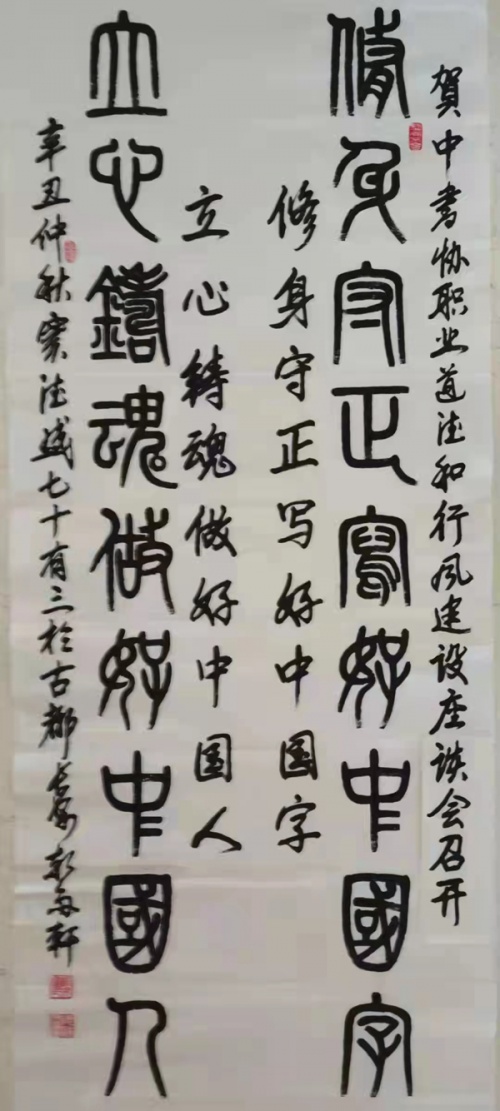 賀中書协职业道德和行风建设座谈会召开
修身守正寫好中國字
修身守正写好中国字
立心铸魂做好中国人
立心鑄魂做好中國人
辛丑仲秋 七十有三於古都长安 轩